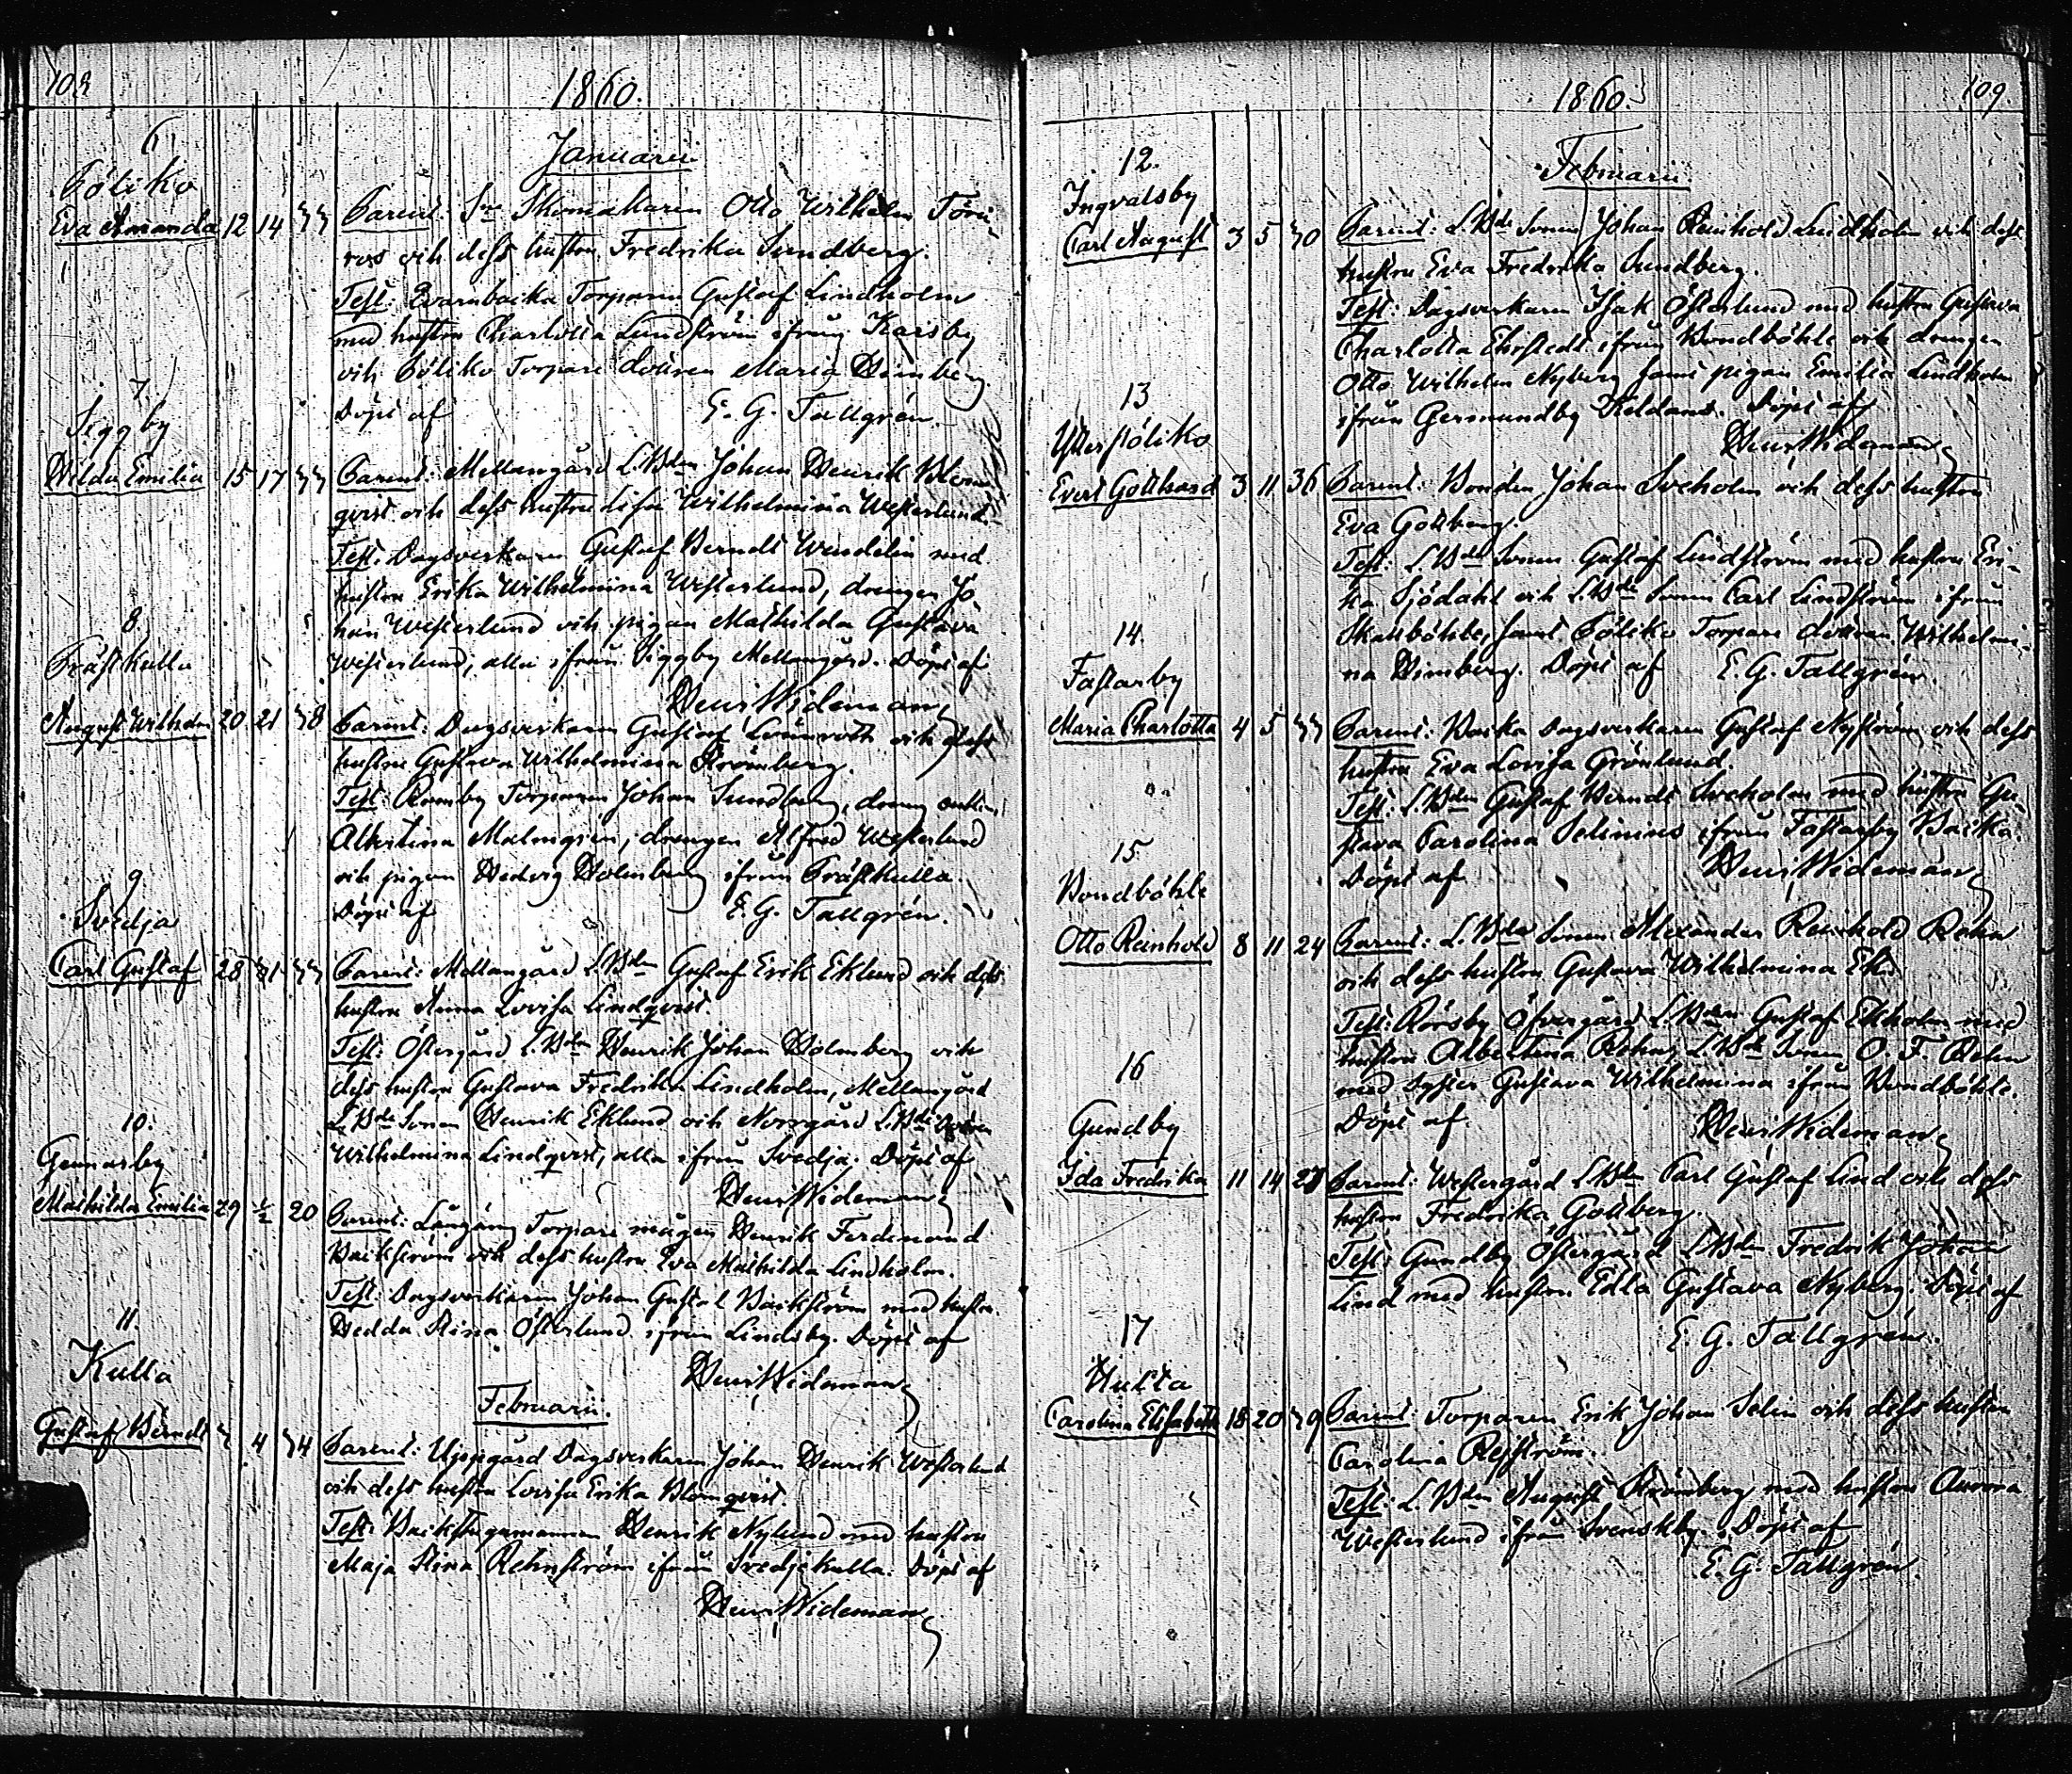 108
1860.
Januarii
6
Böliko
Eva Amanda 12 14 33
Parent: Skomakaren Otto Wilhelm Törn-
ros och dess hustru Fredrika Sundberg.
Test: Torparen Gustaf Lindholm
med hustru Charlotta Lundström ifrån Karsby
och Böliko Torpare dottren Maria Himberg
Döpt af E. G. Tallgrén.
7
Siggby
Hilda Emilia 15 17 33
Parent: Mellangård L.Bdn Johan Henrik Blom-
qvist och dess hustru Lisa Wilhelmina Westerlund.
Test: Dagsverkaren Gustaf Berndt Wendelin med
hustru Erika Wilhelmina Westerlund, drengen Jo-
han Westerlund och pigan Mathilda Gustava
Westerlund, alla ifrån Siggby Mellangård. Döpt af
Henr Wideman
8
Präskulla
August Wilhelm 20 21 38
Parent: Dagsverkaren Gustaf Lönnroth och dess
hustru Gustava Wilhelmina Strömberg.
Test: Romby Torparen Johan Sundberg, dreng enkan
Albertina Malmgrén, drengen Alfred Westerlund
och pigan Hedvig Holmberg ifrån Präskulla.
Döpt af E. G. Tallgrén.
9
Svedja
Carl Gustaf 28 31 33
Parent: Mellangård L.Bdn Gustaf Erik Eklund och dess
hustru Anna Lovisa Lindqvist.
Test: Östergård L.Bdn Henrik Johan Holmberg och
dess hustru Gustava Fredrika Lindholm, Mellangård
L.Bde Sonen Henrik Eklund och Norrgård L.Bde dottren
Wilhelmina Lindqvist, alla ifrån Svedja. Döpt af
Henr Wideman
10.
Gennarby
Mathilda Emilia 29 1/2 20
Parent: Långäng Torpare mågen Henrik Ferdinand
Backström och dess hustru Eva Mathilda Lindholm.
Test: Dagsverkaren Johan Gustaf Backström med hustru
Hedda Stina Österlund ifrån Lindsby. Döpt af
Henr Wideman
Februarii.
11.
Kulla
Gustaf Berndt 3 4 34
Parent: Uppgård Dagsverkaren Johan Henrik Westerlund
och dess hustru Lovisa Erika Blomqvist.
Test: Backstugumannen Henrik Nylund med hustru
Maja Stina Rehnström ifrån Svedjekulla. Döpt af
Henr Wideman
109.
1860
Februarii.
12.
Ingvalsby
Carl August 3 5 30
Parent: L.Bde Sonen Johan Reinhold Lindholm och dess
hustru Eva Fredrika Sundberg.
Test: Dagsverkaren Isak Österlund med hustru Gustava
Charlotta Ehrstedt ifrån Bondböhle och drengen
Otto Wilhelm Nyberg samt pigan Emilia Lindholm
ifrån Germundby. Döpt af
Henr Wideman
13
Ytterböliko
Evert Gotthard 3 11 36
Parent: Bonden Johan Sveholm och dess hustru
Eva Gottberg.
Test: L.Bde Sonen Gustaf Lindström med hustru Eri-
ka Sjödahl och L.Bde Sonen Carl Lindström ifrån
Skatsböhle, samt Böliko Torpare dottren Wilhelmi-
na Himberg. Döpt af E. G. Tallgrén.
14.
Fastarby
Maria Charlotta 4 5 33
Parent: Backa Dagsverkaren Gustaf Nyström och dess
hustru Eva Lovisa Grönlund.
Test: L.Bdn Gustaf Berndt Sveholm med hustru Gu-
stava Carolina Selinius ifrån Fastarby Backa.
Döpt af Henr Wideman
15
Bondböhle
Otto Reinhold 8 11 24
Parent: L.Bde Sonen Alexander Reinhold Rehn
och dess hustru Gustava Wilhelmina Ek.
Test: Rörsby Öfvergård L.Bdn Gustaf Ekholm med
hustru Albertina Rehn, L.Bde Sonen O. F. Rehn
med syster Gustava Wilhelmina ifrån Bondböhle.
Döpt af Henr Wideman
16
Gundby
Ida Fredrika 11 14 27
Parent: Westergård L.Bdn Carl Gustaf Lind och dess
hustru Fredrika Gottberg.
Test: Gundby Östergård L.Bdn Fredrik Johan
Lind med hustru Edla Gustava Nyberg. Döpt af
E. G. Tallgrén.
17
Hulta
Carolina Elisabeth 18 20 39
Parent: Torparen Erik Johan Selin och dess hustru
Carolina Rejström.
Test: L.Bdn August Strömberg med hustru Aurora
Westerlund ifrån Svenskby. Döpt af
E. G. Tallgrén.